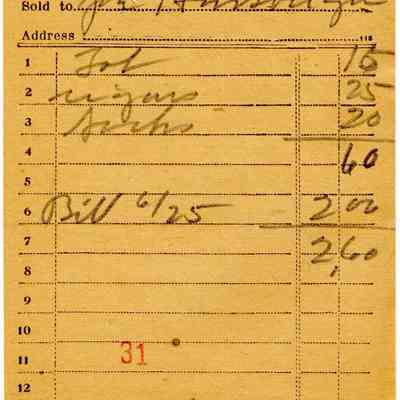 Sold to
Address
1 Tob 15
2 cigars 25
3 Socks 20
4 60
5
6 Bill 6/25 2 00
7 2,60
8
9
10
11 31
12